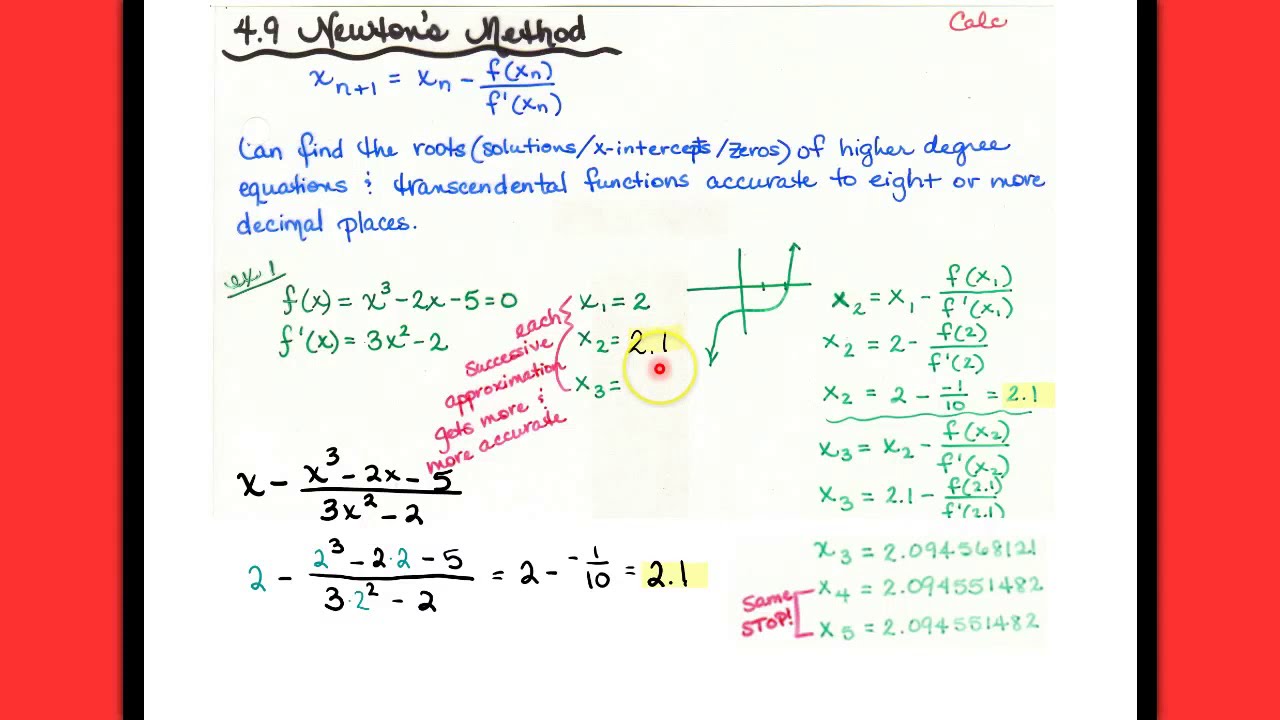 4.9 Newton's Method
Calc
x_{n+1} = x_n - f(x_n)/f'(x_n)
Can find the roots (solutions/x-intercepts/zeros) of higher degree
equations & transcendental functions accurate to eight or more
decimal places.
ex 1
f(x) = x³ - 2x - 5 = 0
f'(x) = 3x² - 2
each
successive
approximation
gets more &
more accurate
x₁ = 2
x₂ = 2.1
x₃ =
x₂ = x₁ - f(x₁)/f'(x₁)
x₂ = 2 - f(2)/f'(2)
x₂ = 2 - -1/10 = 2.1
x₃ = x₂ - f(x₂)/f'(x₂)
x₃ = 2.1 - f(2.1)/f'(2.1)
x - (x³ - 2x - 5)/(3x² - 2)
2 - (2³ - 2·2 - 5)/(3·2² - 2) = 2 - -1/10 = 2.1
x₃ = 2.094568121
x₄ = 2.094551482
x₅ = 2.094551482
Same
STOP!